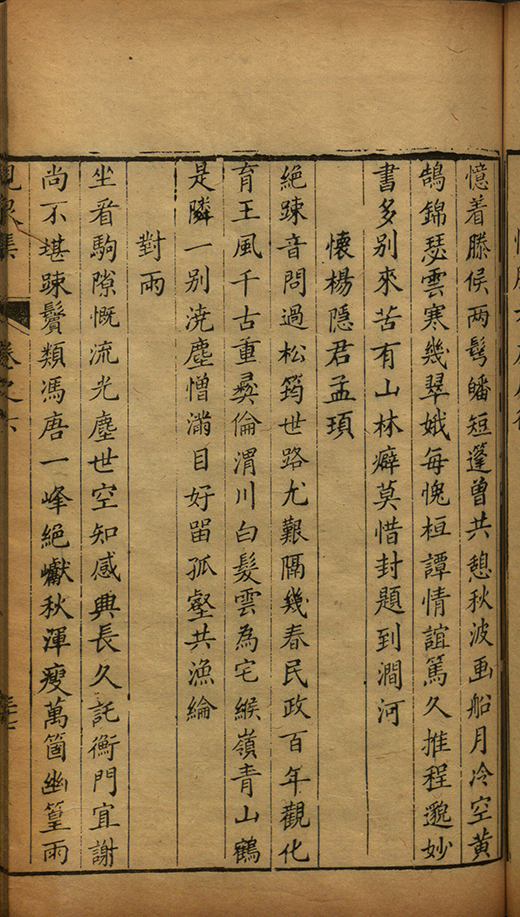 憶着滕侯两鬂皤短蓬曽共憩秋波画船月冷空黄
鵠錦瑟雲寒幾翠娥每愧桓譚情誼篤久推程邈妙
書多别來苦有山林癖莫惜封題到澗河
懷楊隠君孟頊
絶踈音問過松筠世路尤艱隔幾春民政百年觀化
育王風千古重彛倫渭川白髮雲為宅緱嶺青山鶴
是隣一别澆塵憎滿目好留孤壑共漁綸
對雨
坐看駒隙慨流光塵世空知感典長久託衡門宜謝
尚不堪踈鬢類馮唐一峰絶巘秋渾瘦萬箇幽篁雨
集 卷之六